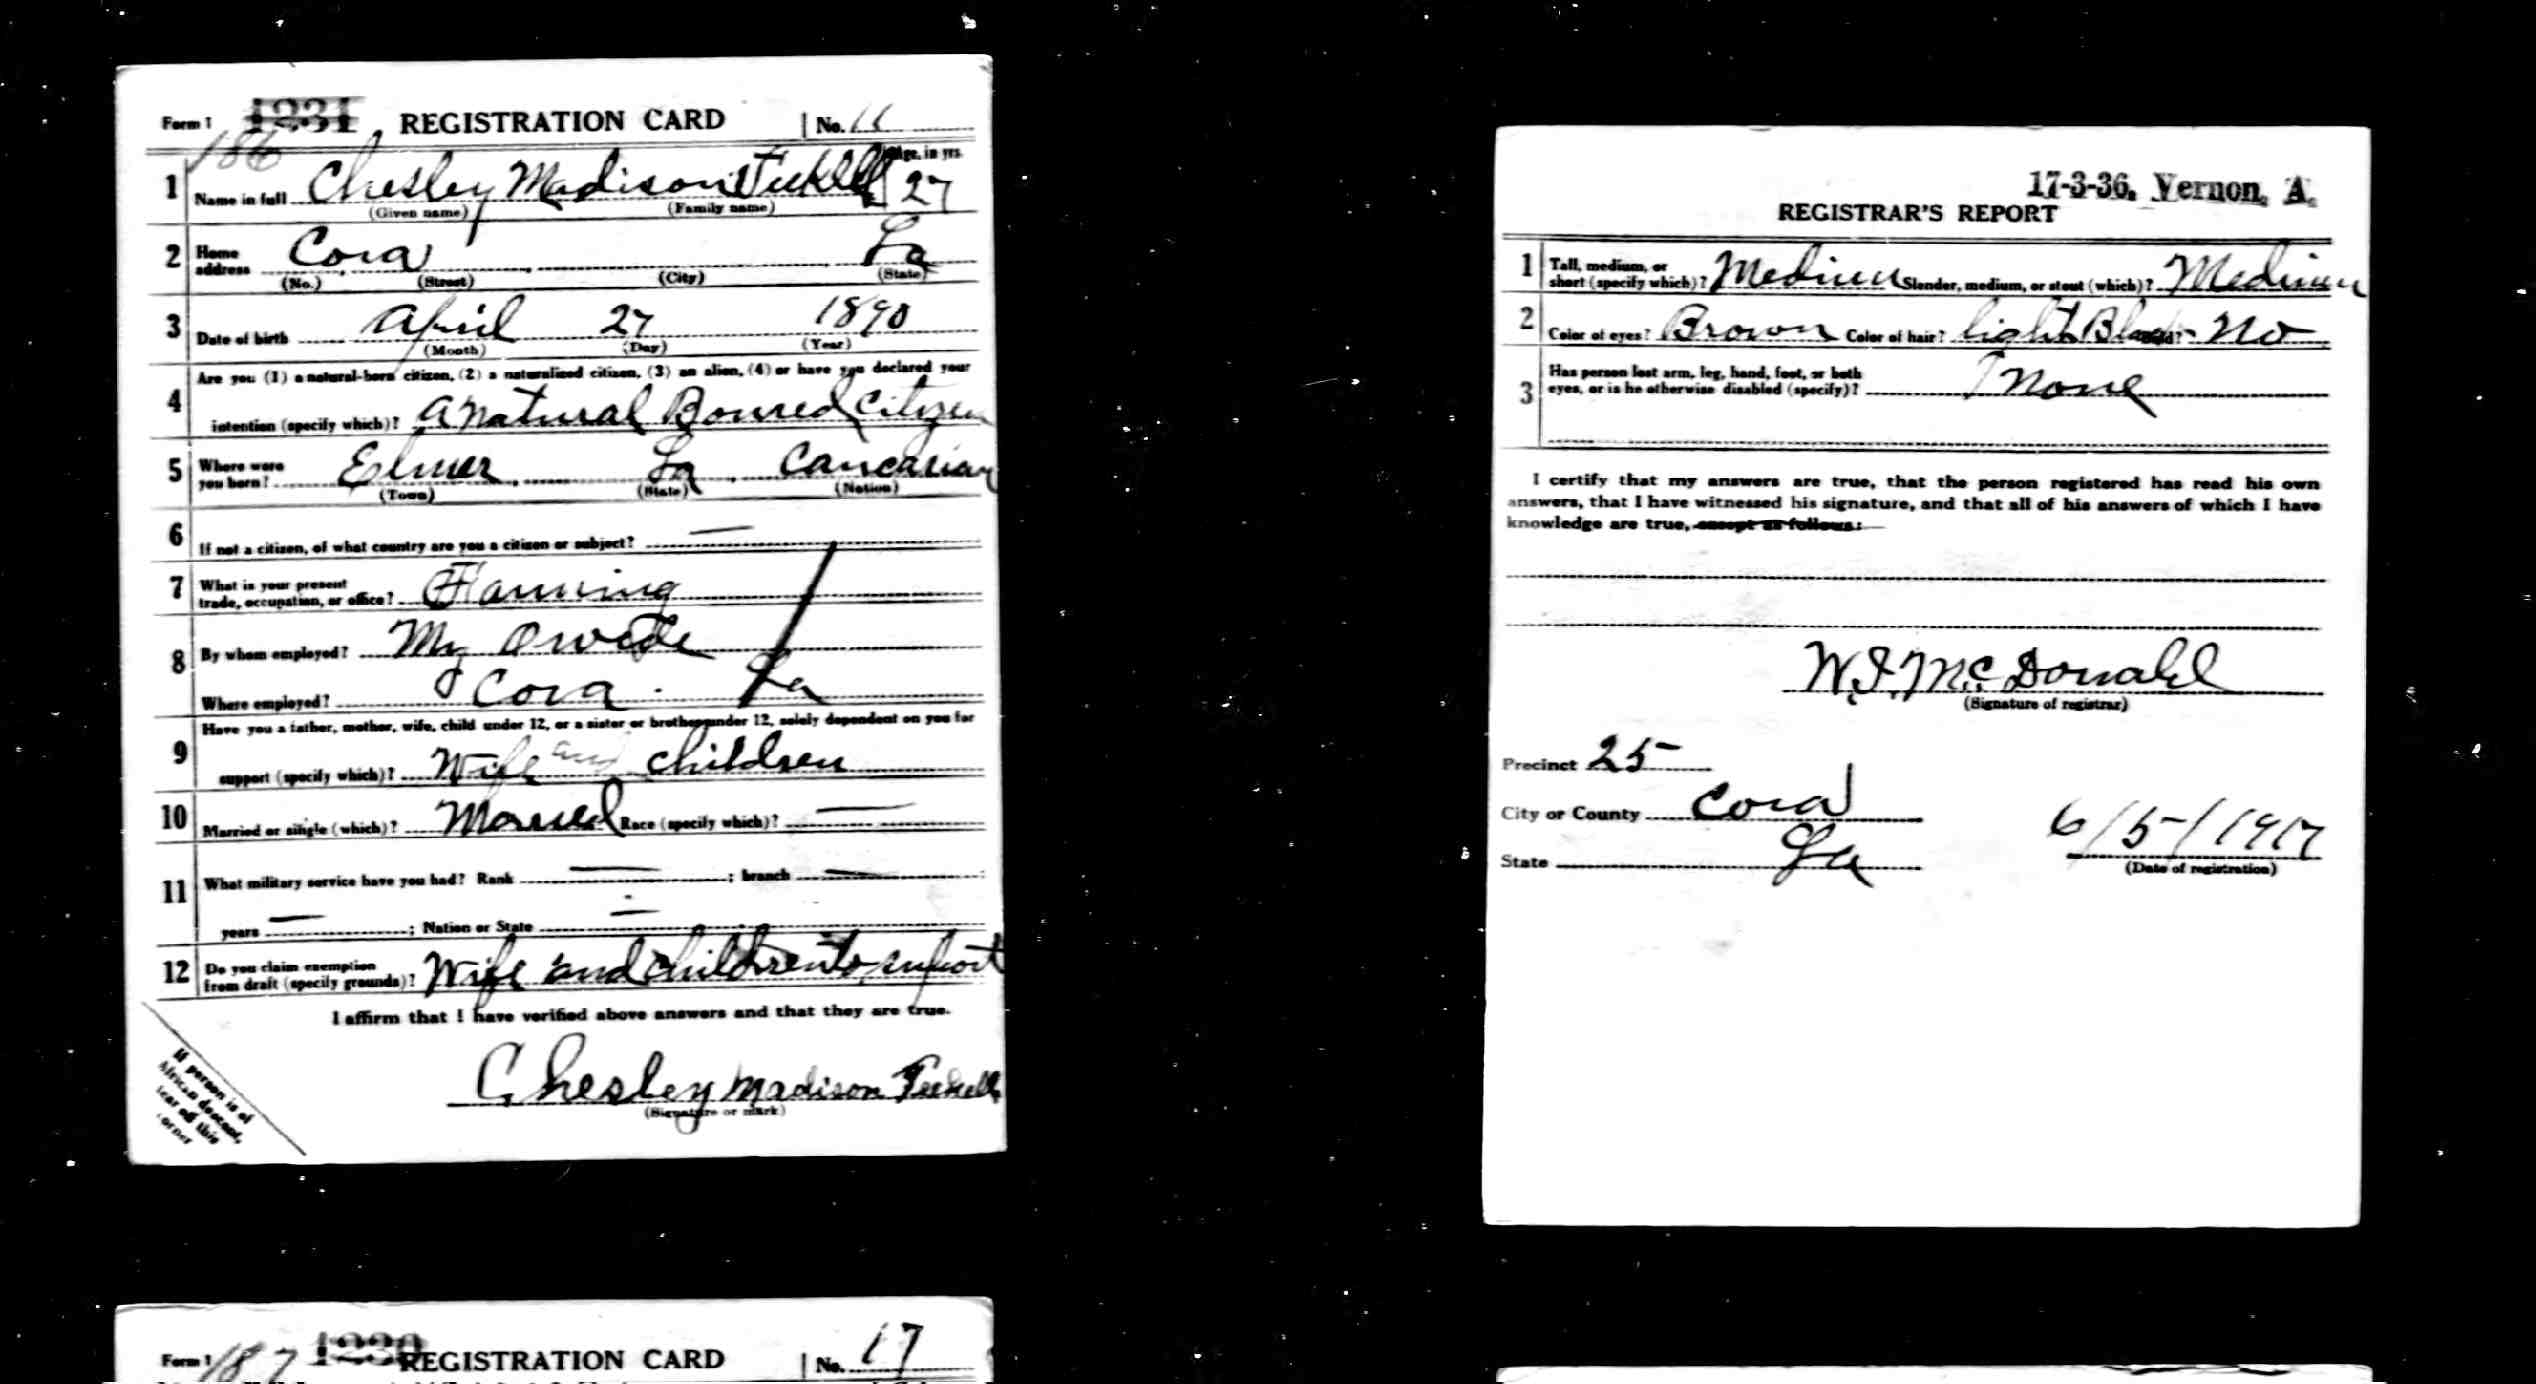 Form 1 1231 REGISTRATION CARD No.
186
1 Name in full Chesley Madison Age, in yrs. 27
(Given name) (Family name)
2 Home address Cora La
(No.) (Street) (City) (State)
3 Date of birth April 27 1890
(Month) (Day) (Year)
Are you (1) a natural-born citizen, (2) a naturalized citizen, (3) an alien, (4) or have you declared your
4 intention (specify which)? a Natural Bourned Citizen
5 Where were you born? Elmer, La, Caucasian
(Town) (State) (Nation)
6 If not a citizen, of what country are you a citizen or subject? —
7 What is your present trade, occupation, or office? Farming
8 By whom employed? My
Where employed? Cora. La
Have you a father, mother, wife, child under 12, or a sister or brother under 12, solely dependent on you for
9 support (specify which)? Wife and children
10 Married or single (which)? Married Race (specify which)? —
11 What military service have you had? Rank — ; branch —
years — ; Nation or State —
12 Do you claim exemption from draft (specify grounds)? Wife and children to suport
I affirm that I have verified above answers and that they are true.
Chesley Madison
(Signature or mark)
If person is of
African descent,
tear off this
corner
17-3-36. Vernon, A.
REGISTRAR'S REPORT
1 Tall, medium, or short (specify which)? Medium Slender, medium, or stout (which)? Medium
2 Color of eyes? Brown Color of hair? light No
3 Has person lost arm, leg, hand, foot, or both eyes, or is he otherwise disabled (specify)? None
I certify that my answers are true, that the person registered has read his own
answers, that I have witnessed his signature, and that all of his answers of which I have
knowledge are true, except as follows:
W.I. McDonald
(Signature of registrar)
Precinct 25
City or County Cora
State La
6/5/1917
(Date of registration)
Form 1 187 REGISTRATION CARD No. 17